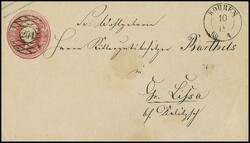 KOHREN
10
Sr. Wohlgeboren
Herrn Rittergutsbesitzer Barthels
Gr. Lissa
b/ Delitzsch